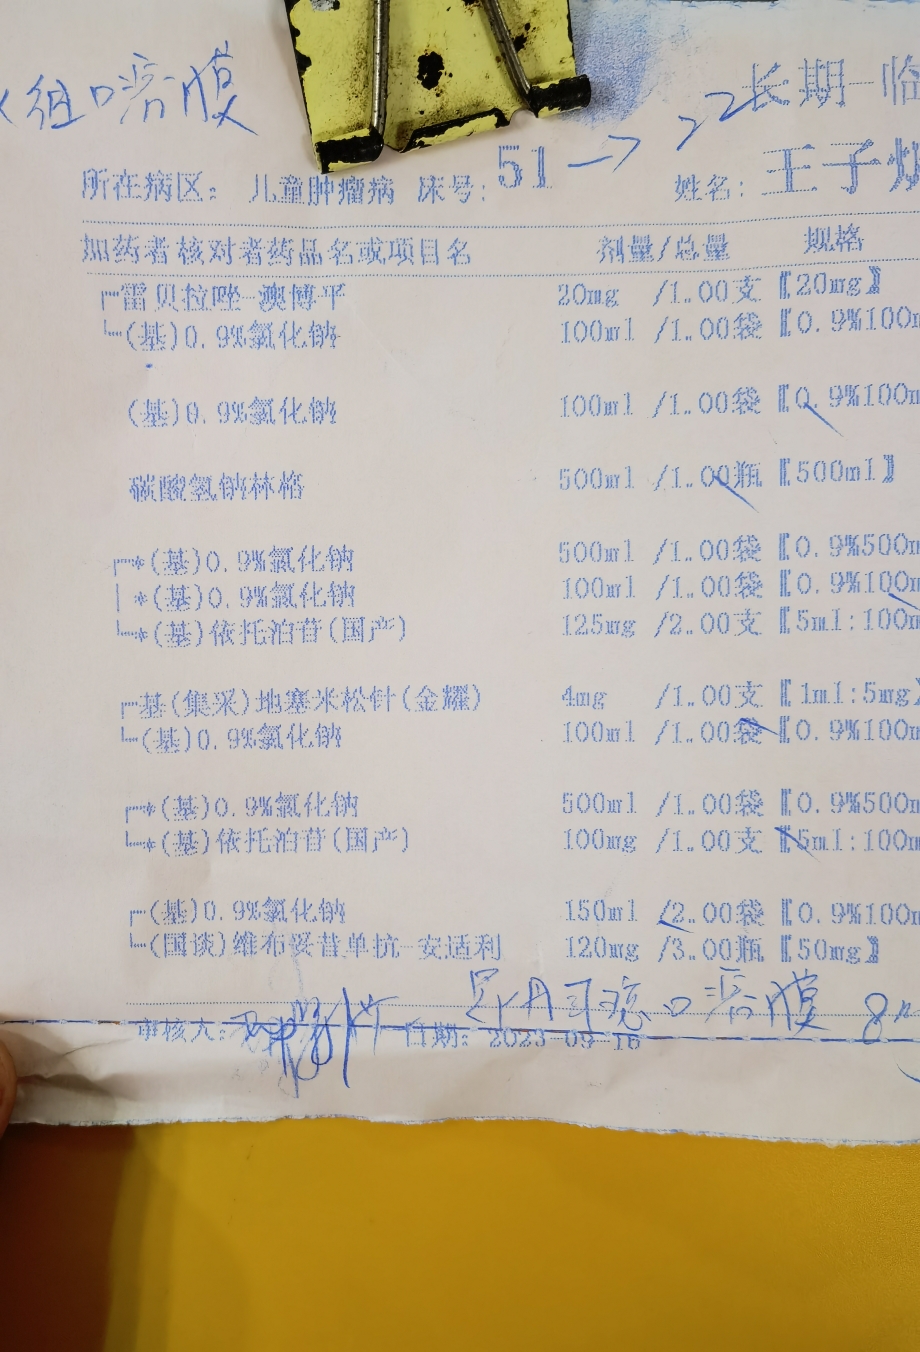 组口溶膜
长期 临
所在病区： 儿童肿瘤病 床号： 51 → 22 姓名： 王子
加药者 核对者药品名或项目名 剂量/总量 规格
雷贝拉唑-澳博平 20mg /1.00支【20mg】
(基)0.9%氯化钠 100ml /1.00袋【0.9%100m
(基)0.9%氯化钠 100ml /1.00袋【0.9%100m
碳酸氢钠林格 500ml /1.00瓶【500ml】
*(基)0.9%氯化钠 500ml /1.00袋【0.9%500m
*(基)0.9%氯化钠 100ml /1.00袋【0.9%100m
*(基)依托泊苷(国产) 125mg /2.00支【5ml:100m
基(集采)地塞米松针(金耀) 4mg /1.00支【1ml:5mg】
(基)0.9%氯化钠 100ml /1.00袋【0.9%100m
*(基)0.9%氯化钠 500ml /1.00袋【0.9%500m
*(基)依托泊苷(国产) 100mg /1.00支【5ml:100m
(基)0.9%氯化钠 150ml /2.00袋【0.9%100m
(国谈)维布妥昔单抗-安适利 120mg /3.00瓶【50mg】
昂丹司琼口溶膜 8
审核人： 日期： 2023-09-16